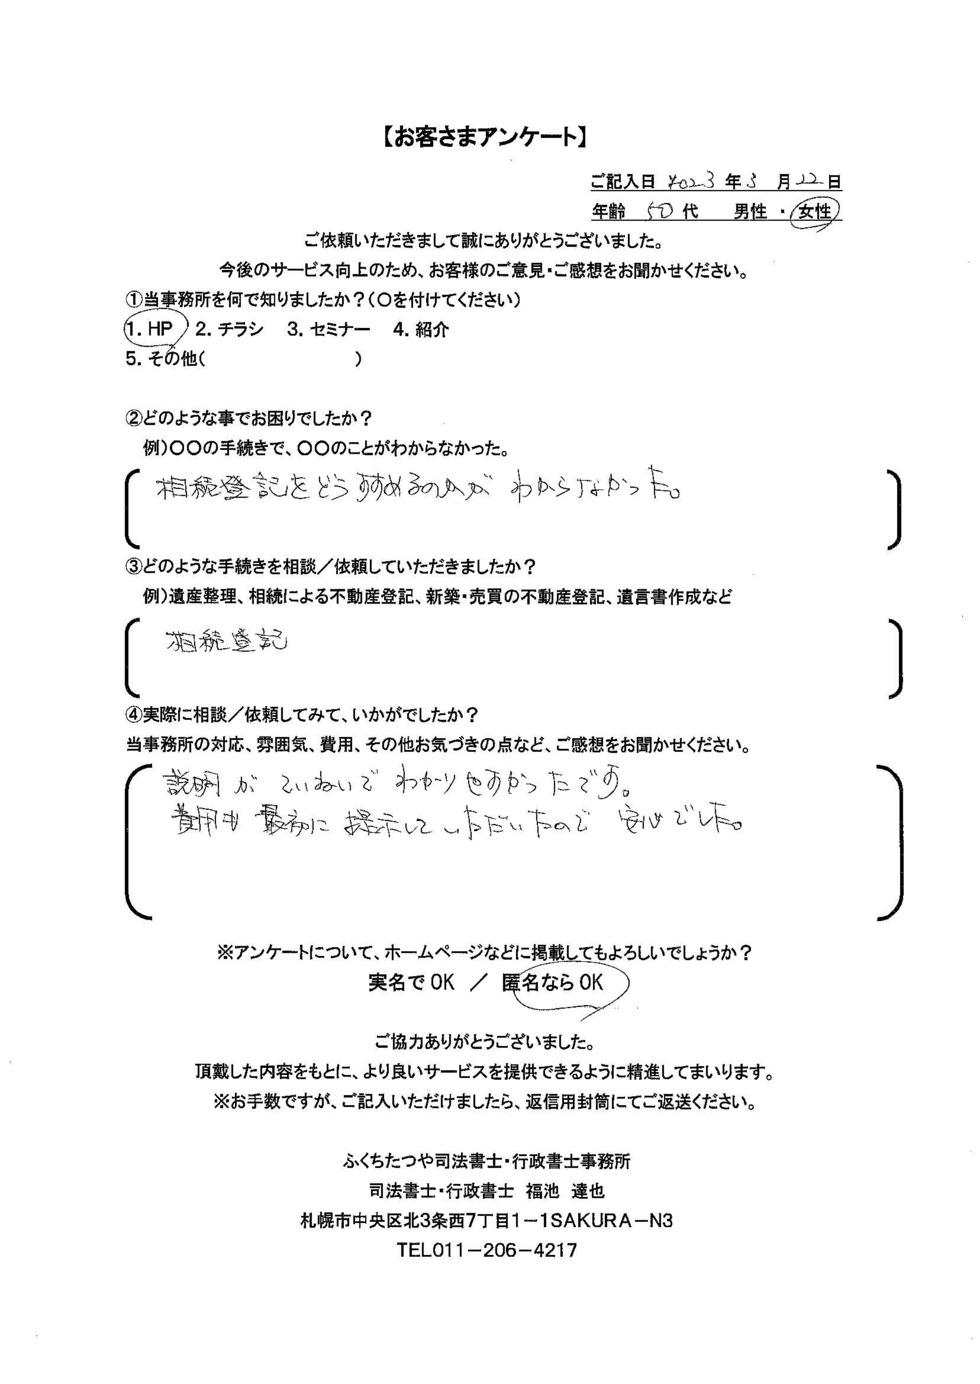 【お客さまアンケート】
ご記入日 2023 年 3 月 22 日
年齢 50 代 男性 ・ 女性
ご依頼いただきまして誠にありがとうございました。
今後のサービス向上のため、お客様のご意見・ご感想をお聞かせください。
①当事務所を何で知りましたか？（○を付けてください）
1. HP 2. チラシ 3. セミナー 4. 紹介
5. その他（ ）
②どのような事でお困りでしたか？
例）○○の手続きで、○○のことがわからなかった。
相続登記をどうすすめるのかがわからなかった。
③どのような手続きを相談／依頼していただきましたか？
例）遺産整理、相続による不動産登記、新築・売買の不動産登記、遺言書作成など
相続登記
④実際に相談／依頼してみて、いかがでしたか？
当事務所の対応、雰囲気、費用、その他お気づきの点など、ご感想をお聞かせください。
説明がていねいでわかりやすかったです。
費用も最初に提示していただいたので安心でした。
※アンケートについて、ホームページなどに掲載してもよろしいでしょうか？
実名でOK ／ 匿名ならOK
ご協力ありがとうございました。
頂戴した内容をもとに、より良いサービスを提供できるように精進してまいります。
※お手数ですが、ご記入いただけましたら、返信用封筒にてご返送ください。
ふくちたつや司法書士・行政書士事務所
司法書士・行政書士 福池 達也
札幌市中央区北3条西7丁目1－1SAKURA－N3
TEL011－206－4217